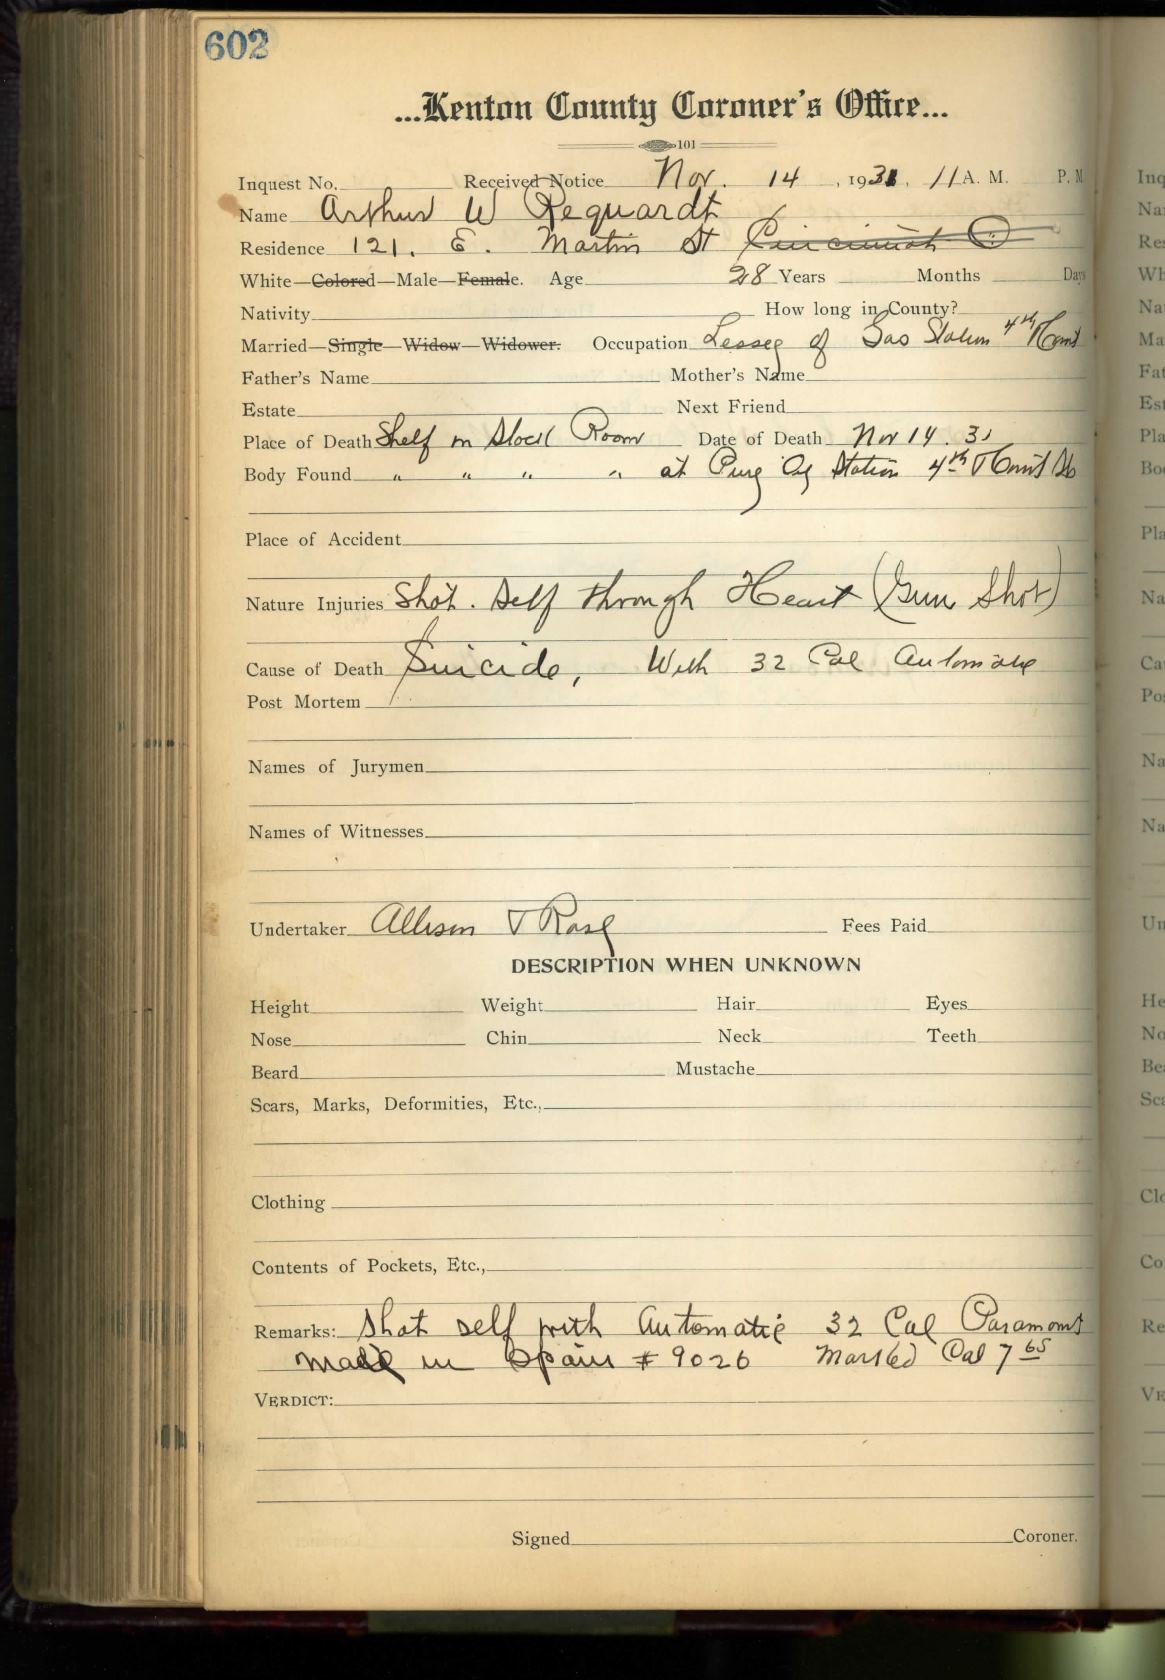 602
...Kenton County Coroner's Office...
101
Inquest No. Received Notice Nov. 14, 1931, 11 A. M. P. M
Name Arthur W Requardt
Residence 121. E. Martin St Cincinnati O
White—Colored—Male—Female. Age 28 Years Months Days
Nativity How long in County?
Married—Single—Widow—Widower. Occupation Lessee of Gas Station 4th
Father's Name Mother's Name
Estate Next Friend
Place of Death Shelf in Stock Room Date of Death Nov 14. 31
Body Found " " " " at Pure Oil Station 4th
Place of Accident
Nature Injuries Shot. Self through Heart (Gun Shot)
Cause of Death Suicide, With 32 Cal Automatic
Post Mortem
Names of Jurymen
Names of Witnesses
Undertaker Allison & Rose Fees Paid
DESCRIPTION WHEN UNKNOWN
Height Weight Hair Eyes
Nose Chin Neck Teeth
Beard Mustache
Scars, Marks, Deformities, Etc.,
Clothing
Contents of Pockets, Etc.,
Remarks: Shot self with Automatic 32 Cal Paramont
made in Spain # 9026 Marked Cal 7 65
VERDICT:
Signed Coroner.
Inq
Na
Res
Wh
Na
Ma
Fat
Est
Pla
Bo
Pla
Na
Ca
Pos
Na
Na
Un
He
No
Bea
Sca
Clo
Co
Re
VE